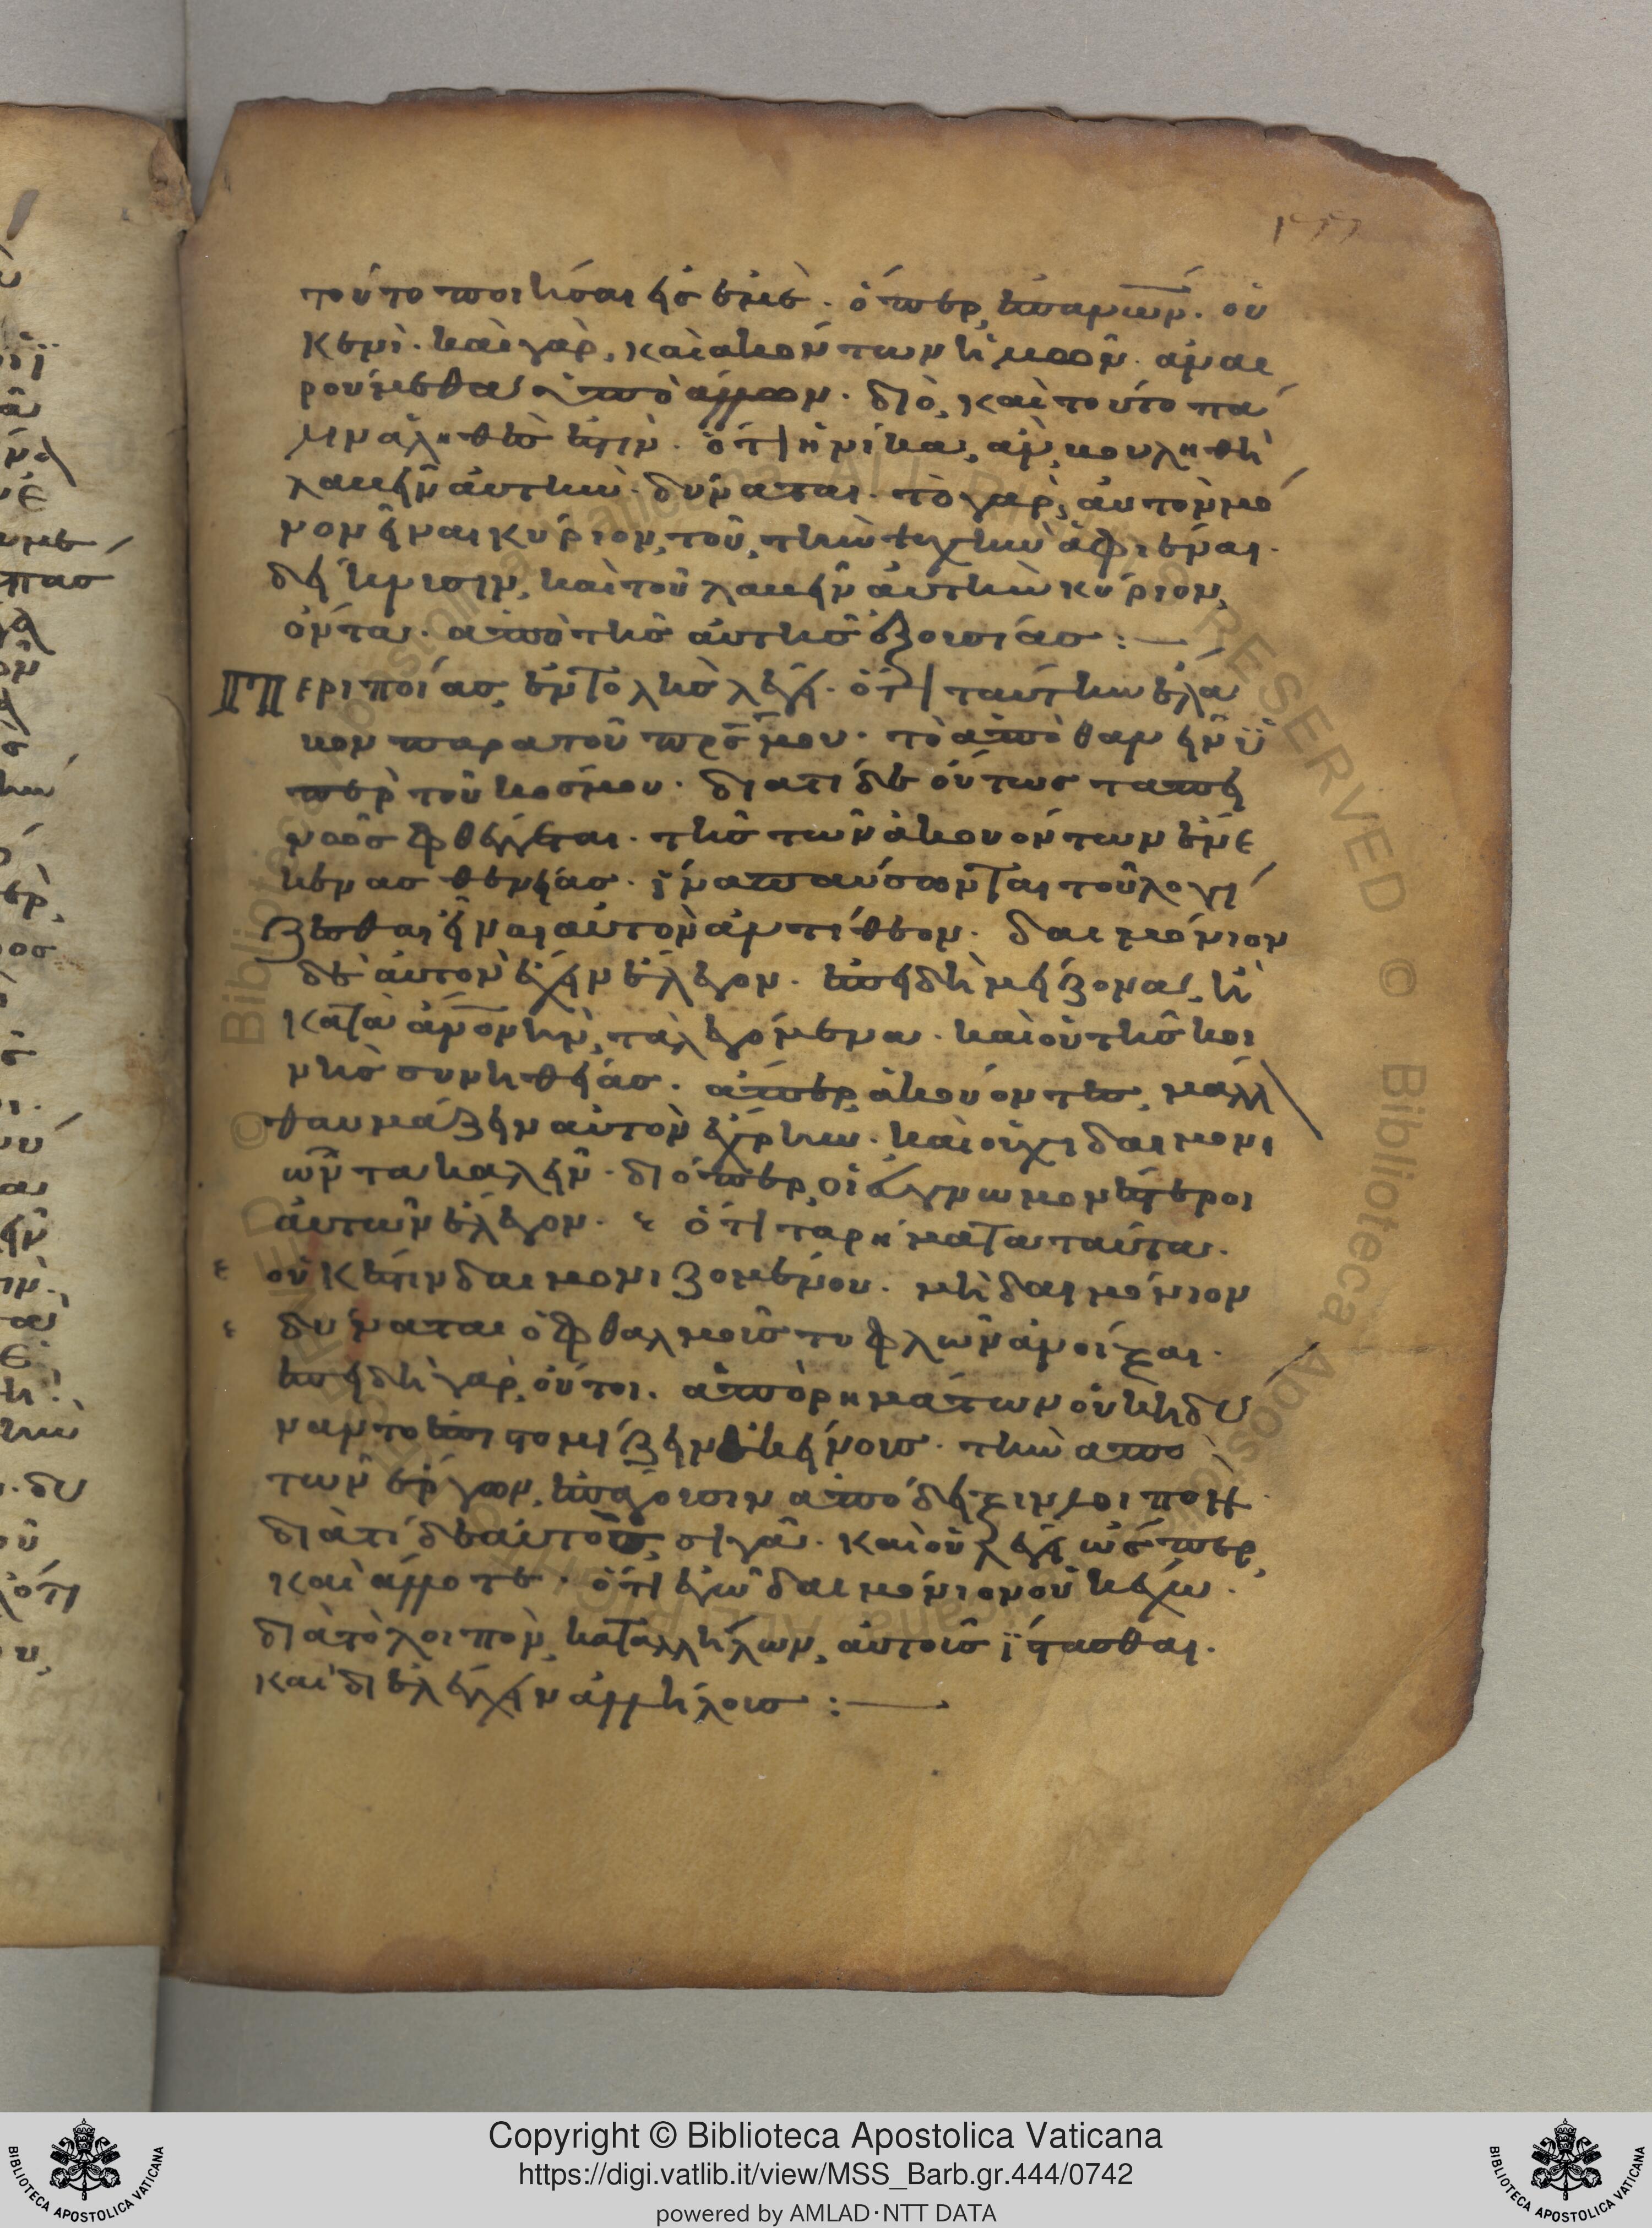 τοῦτο ποιῆσαι εἰς ἐμέ. ὅπερ, ἐπ' ἀν̅ω̅ν. οὐ
κ ἔνι. καὶ γὰρ, καὶ ἀκόντων ἡμῶν. ἀναι
ρούμεθα ὑπὸ ἄλλων. διὸ, καὶ τοῦτο πά
λιν ἀληθές ἐστιν. ὅτι ἡνίκα, ἂν, βουληθῆ
λαβεῖν αὐτὴν δύναται. τὸ γὰρ, αὐτὸν μό
νον εἶναι κύριον, τοῦ, τὴν ψυχὴν ἀφιέναι.
δείκνυσιν, καὶ τοῦ λαβεῖν αὐτὴν κύριον,
ὄντα. ἀπὸ τῆς αὐτῆς ἐξουσίας :—
Περι ποίας, ἐντολῆς λέγει. ὅτι ταύτην ἔλα
βον παρα τοῦ πρ̅ς μου. τὸ ἀποθανεῖν ϋ
πὲρ τοῦ κόσμου. διατί δὲ οὕτως ταπει
νῶς φθέγγεται. τῆς τῶν ἀκουόντων ἕνε
κεν ἀσθενείας. ἵνα παύσωνται τοῦ λογί
ζεσθαι εἶναι αὐτὸν ἀντίθεον. δαιμόνιον
δὲ αὐτὸν ἔχειν ἔλεγον. ἐπειδὴ μείζονα, ἢ
κατὰ ἄν̅ο̅ν ἦν, τὰ λεγόμενα. καὶ οὐ τῆς κοι
νῆς συνηθείας. ἅπερ, ἀκούοντες, μᾶλλ
θαυμάζειν αὐτὸν ἐχρῆν. καὶ οὐχι δαιμονι
ῶντα καλεῖν. διόπερ, οἱ εὐγνωμονέστεροι
αὐτῶν ἔλεγον. ὅτι τα ρήματα ταῦτα.
οὐκ ἔστιν δαιμονιζομένου. μὴ δαιμόνιον
δύναται ὀφθαλμοὺς τυφλῶν ἀνοῖξαι.
ἐπειδὴ γὰρ, οὗτοι. ἀπὸ ρημάτων οὐκ ἠδύ
ναντο ἐπιστομίζειν ἐκείνους. τὴν ἀπὸ
τῶν ἔργων, ἐπάγουσιν ἀπόδειξιν λοιπόν.
διατί δὲ αὐτὸς, σιγᾶ. καὶ οὐ λέγει ὥσπερ,
καὶ ἄλλοτε. ὅτι ἐγὼ δαιμόνιον οὐκ ἔχω.
διὰ τὸ λοιπὸν, κατ' ἀλλήλων, αὐτοὺς ἵστασθαι.
καὶ διελέγχειν ἀλλήλους :—
Copyright © Biblioteca Apostolica Vaticana
https://digi.vatlib.it/view/MSS_Barb.gr.444/0742
powered by AMLAD·NTT DATA